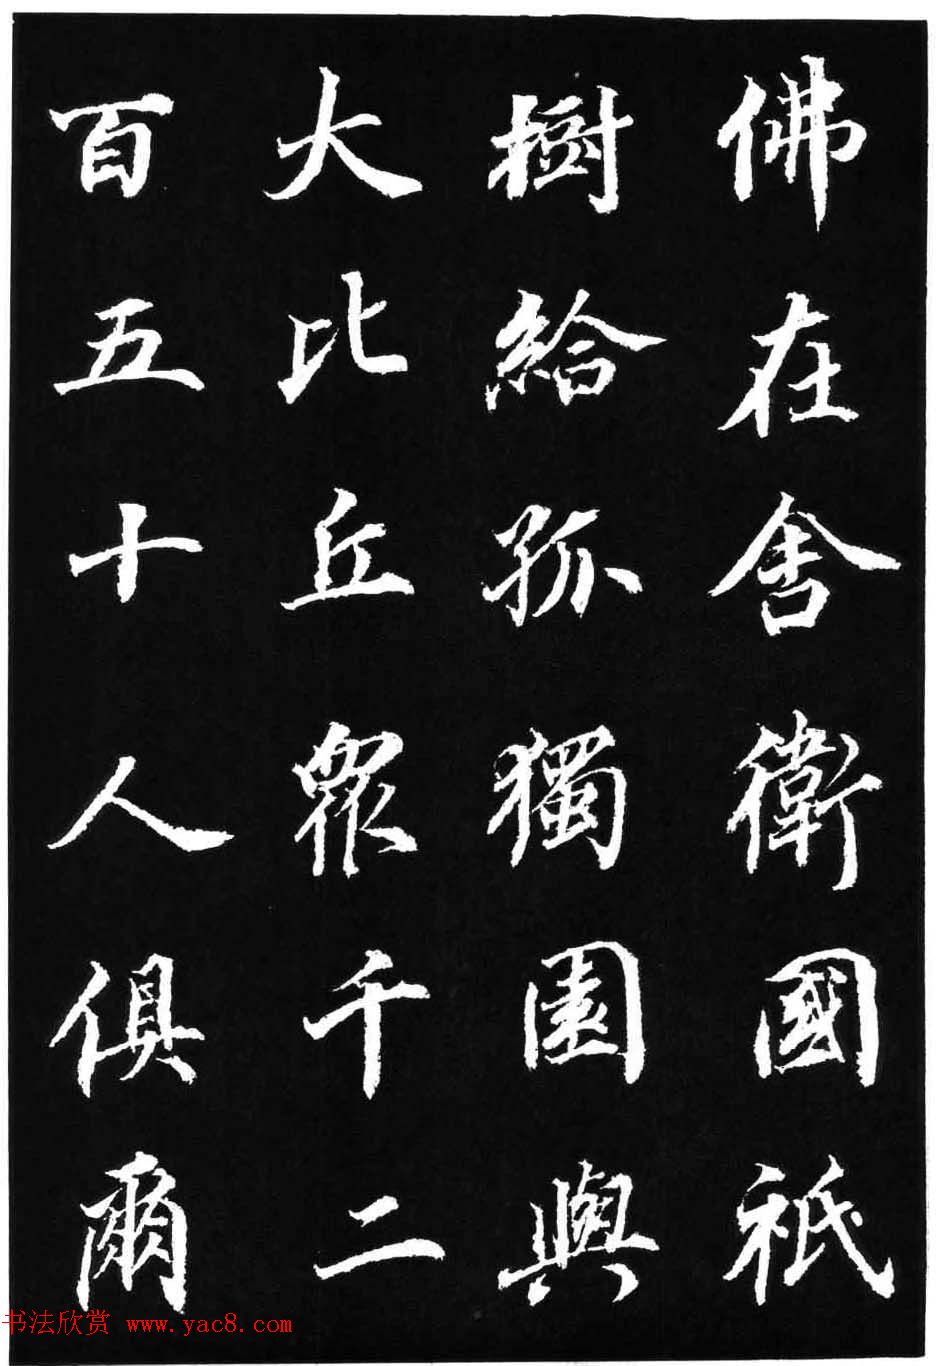 佛在舍衛國祇
樹給孤獨園與
大比丘眾千二
百五十人俱爾
书法欣赏 www.yac8.com